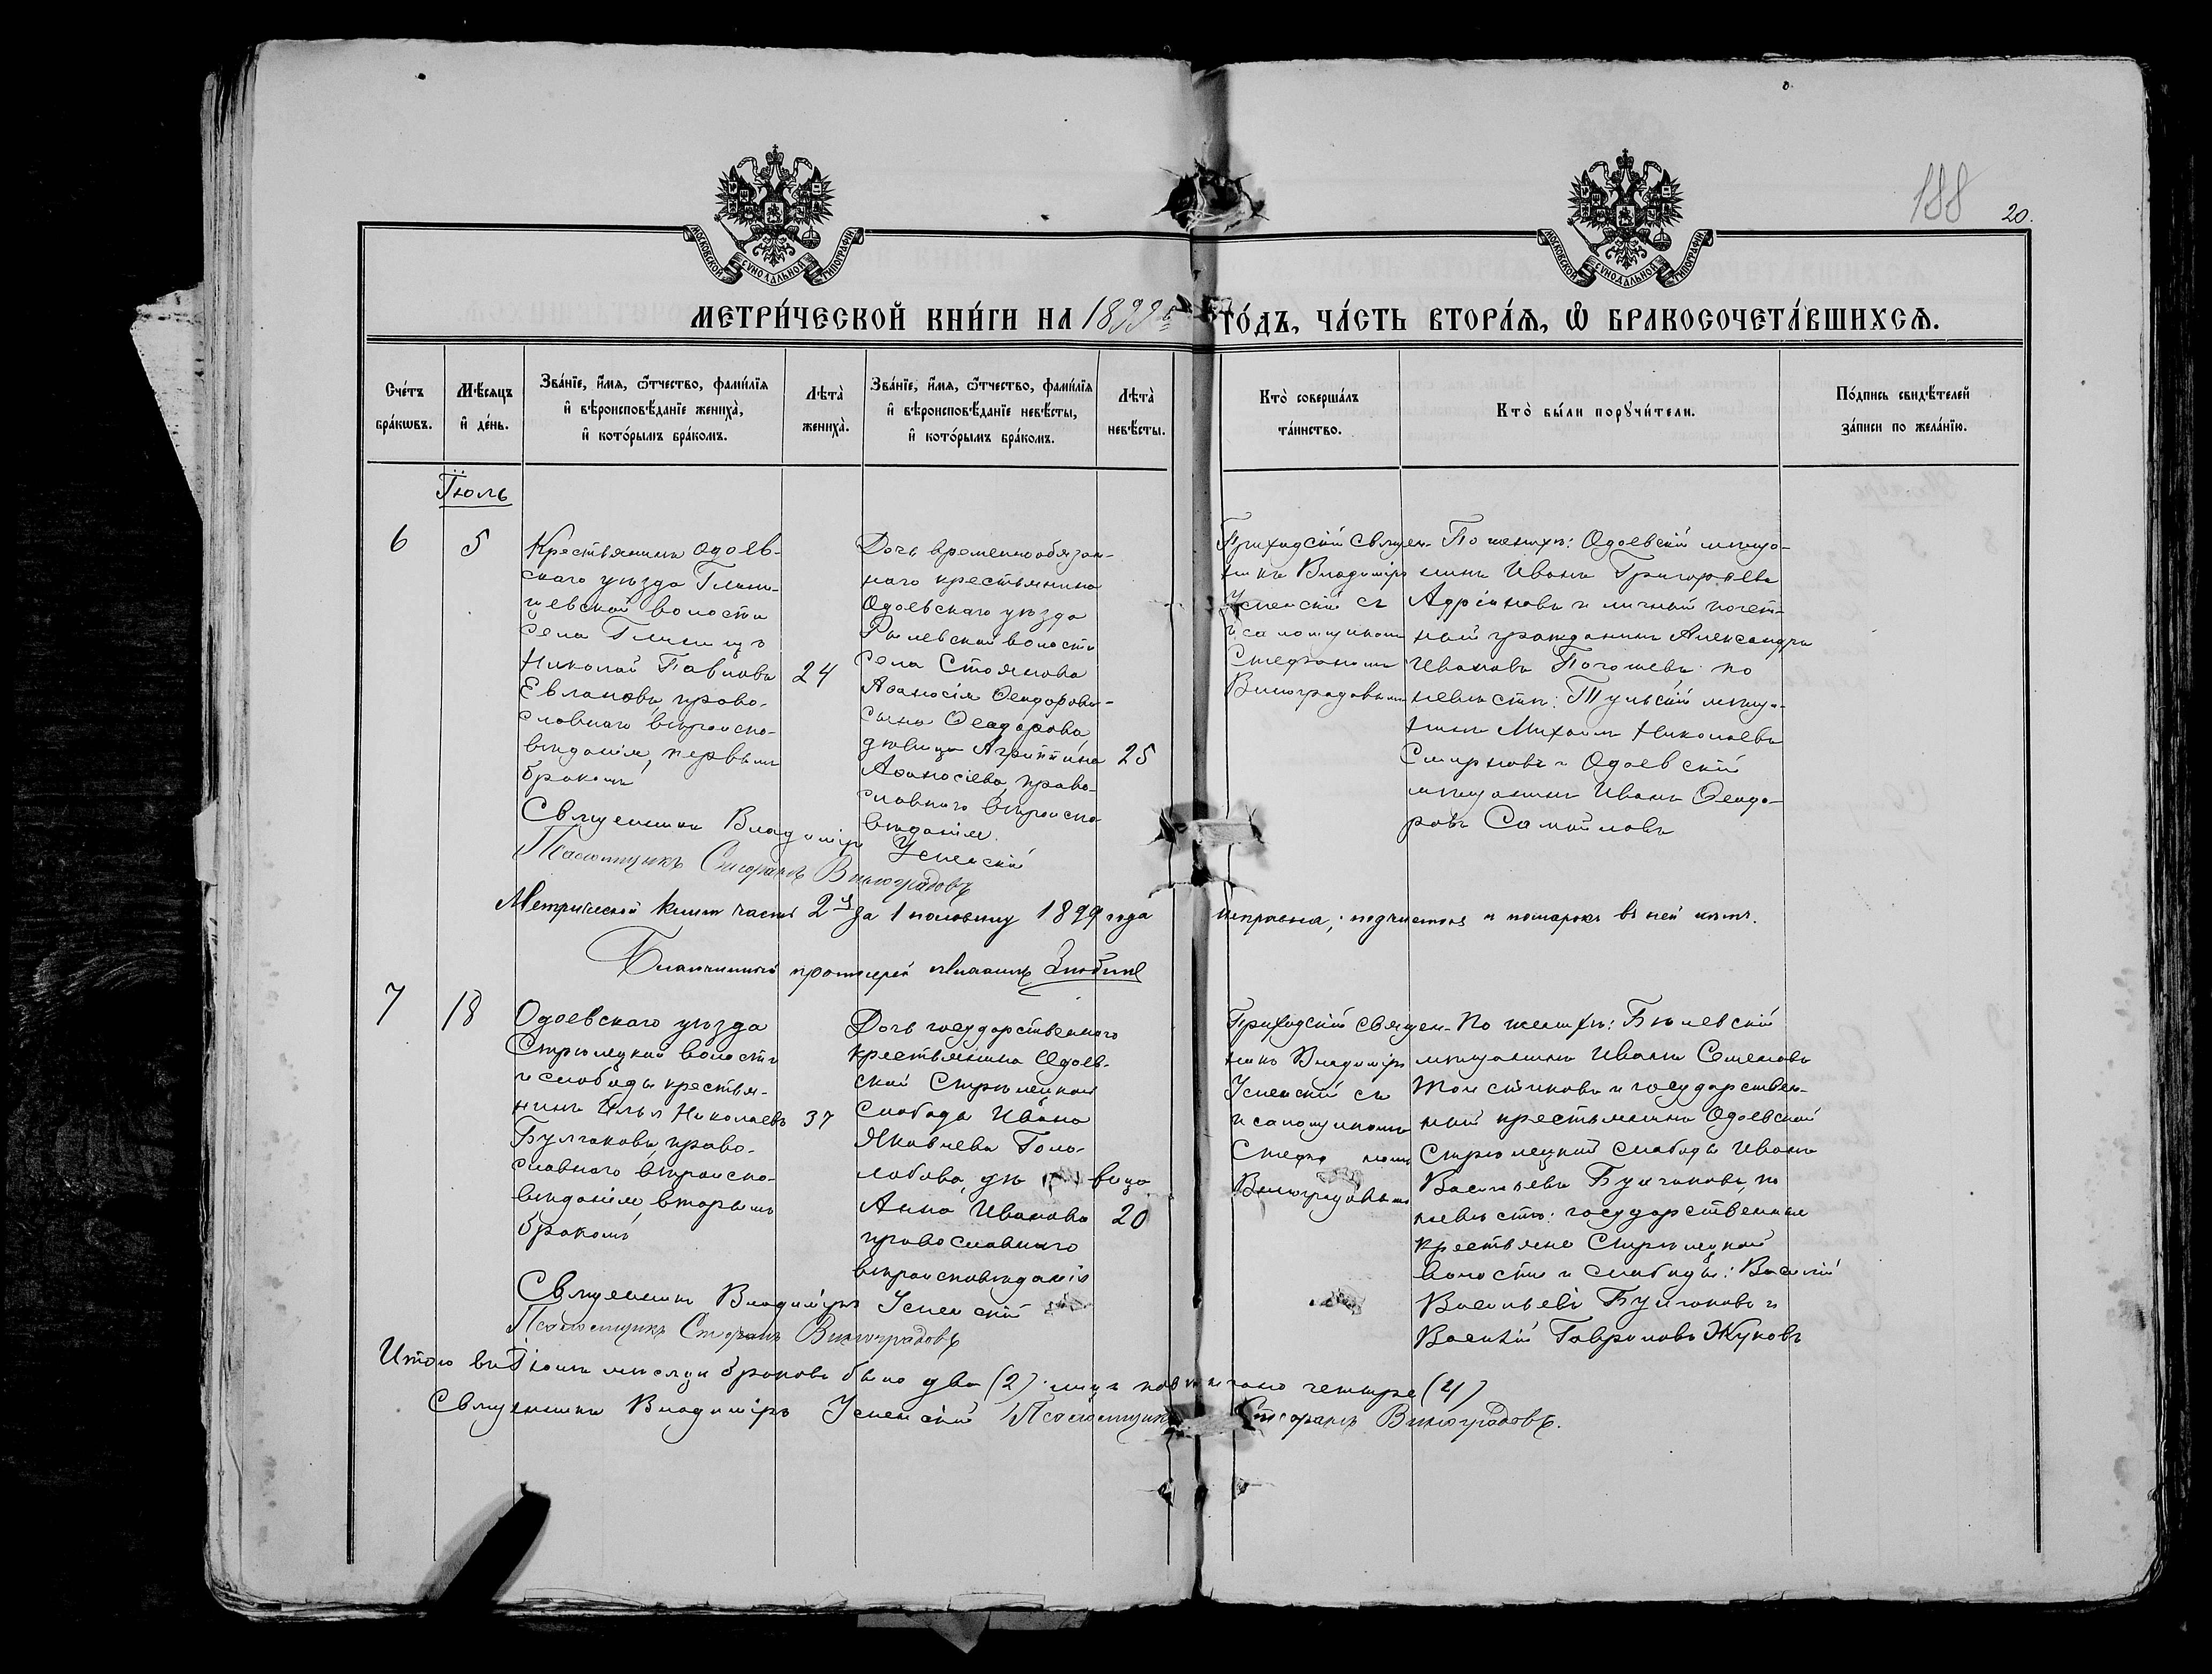 188
20.
МОСКОВСКОЙ СѴНОДАЛЬНОЙ ТИПОГРАФІИ
МОСКОВСКОЙ СѴНОДАЛЬНОЙ ТИПОГРАФІИ
МЕТРИ́ЧЕСКОЙ КНИ́ГИ НА 1899й ГО́ДЪ, ЧА́СТЬ ВТОРА́Я, Ѡ БРАКОСОЧЕТА́ВШИХСЯ.
Сче́тъ
бра́кѡвъ.
Мѣ́сяцъ
и де́нь.
Зва́нїе, и́мя, ѻ́тчество, фами́лїя
и вѣроисповѣ́данїе жениха̀,
и кото́рымъ бра́комъ.
Лѣта̀
жениха̀.
Зва́нїе, и́мя, ѻ́тчество, фами́лїя
и вѣроисповѣ́данїе невѣ́сты,
и кото́рымъ бра́комъ.
Лѣта̀
невѣ́сты.
Кто̀ соверша́лъ
та́инство.
Кто̀ бы́ли порꙋчи́тели.
По́дпись свидѣ́телей
за́писи по жела́нїю.
Іюль
6
5
Крестьянинъ Одоев-
скаго уѣзда Глини-
щевской волости
села Глинищъ
Николай Павловъ
Евлановъ, право-
славнаго вѣроиспо-
вѣданія, первымъ
бракомъ
24
Дочь временнообязан-
наго крестьянина
Одоевскаго уѣзда
Рылевской волости
села Стоянова
Аѳанасія Ѳеодорова
сына Ѳеодорова,
дѣвица Агриппина
Аѳанасіева, право-
славнаго вѣроиспо-
вѣданія.
25
Приходскій священ-
никъ Владиміръ
Успенскій съ
псаломщикомъ
Стефаномъ
Виноградовымъ
По женихѣ: Одоевскій мѣща-
нинъ Иванъ Григорьевъ
Адріановъ и личный почет-
ный гражданинъ Александръ
Ивановъ по
невѣстѣ: Тульскій мѣща-
нинъ Михаилъ Николаевъ
Смирновъ и Одоевскій
мѣщанинъ Иванъ Ѳеодо-
ровъ Самойловъ
Священникъ Владиміръ Успенскій
Псаломщикъ Стефанъ Виноградовъ
Метрической книги часть 2я за 1 половину 1899 года исправна; подчистокъ и помарокъ въ ней нѣтъ.
Благочинный протоіерей Михаилъ
7
18
Одоевскаго уѣзда
Стрѣлецкой волости
и слободы крестья-
нинъ Илья Николаевъ
Булгаковъ, право-
славнаго вѣроиспо-
вѣданія вторымъ
бракомъ
37
Дочь государственнаго
крестьянина Одоев-
ской Стрѣлецкой
слободы Ивана
Яковлева Голо-
лобова, дѣвица
Анна Иванова
православнаго
вѣроисповѣданія
20
Приходскій священ-
никъ Владиміръ
Успенскій съ
псаломщикомъ
Стефаномъ
Виноградовымъ
По женихѣ: Бѣлевскій
мѣщанинъ Иванъ Семеновъ
Толстиковъ и государствен-
ный крестьянинъ Одоевской
Стрѣлецкой слободы Иванъ
Васильевъ Булгаковъ, по
невѣстѣ: государственные
крестьяне Стрѣлецкой
волости и слободы: Василій
Васильевъ Булгаковъ и
Василій Гавриловъ Жуковъ
Священникъ Владиміръ Успенскій
Псаломщикъ Стефанъ Виноградовъ
Итого въ Іюлѣ мѣсяцѣ браковъ было два (2) лицъ повѣнчано четыре (4)
Священникъ Владиміръ Успенскій Псаломщикъ Стефанъ Виноградовъ.